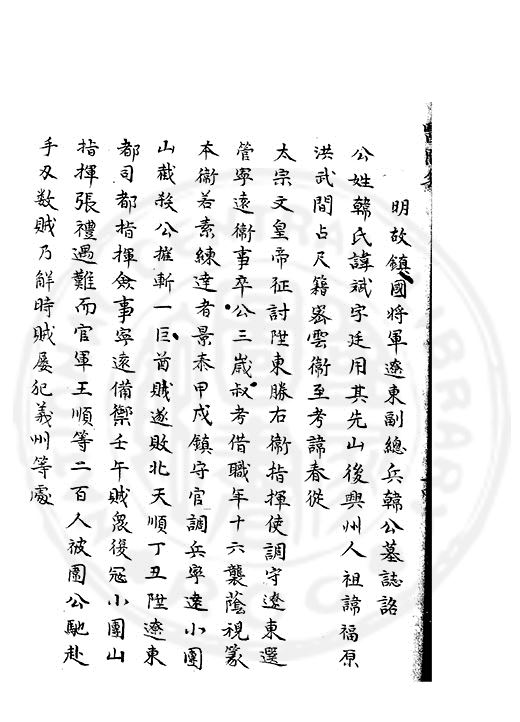 明故鎮國將軍遼東副總兵韓公墓誌詺
公姓韓氏諱斌字廷用其先山後興州人祖諱福原
洪武間占尺籍密雲衞至考諱春從
太宗文皇帝征討陞東勝右衞指揮使調守遼東選
管寧遠衞事卒公三歲叔考借職年十六襲蔭視篆
本衞若素練達者景泰甲戌鎮守官調兵寧遠小團
山截殺公摧斬一巨酋賊遂敗北天順丁丑陞遼東
都司都指揮僉事寧遠備禦壬午賊衆復寇小團山
指揮張禮遇難而官軍王順等二百人被圍公馳赴
手刃数賊乃觧時賊屡犯義州等處